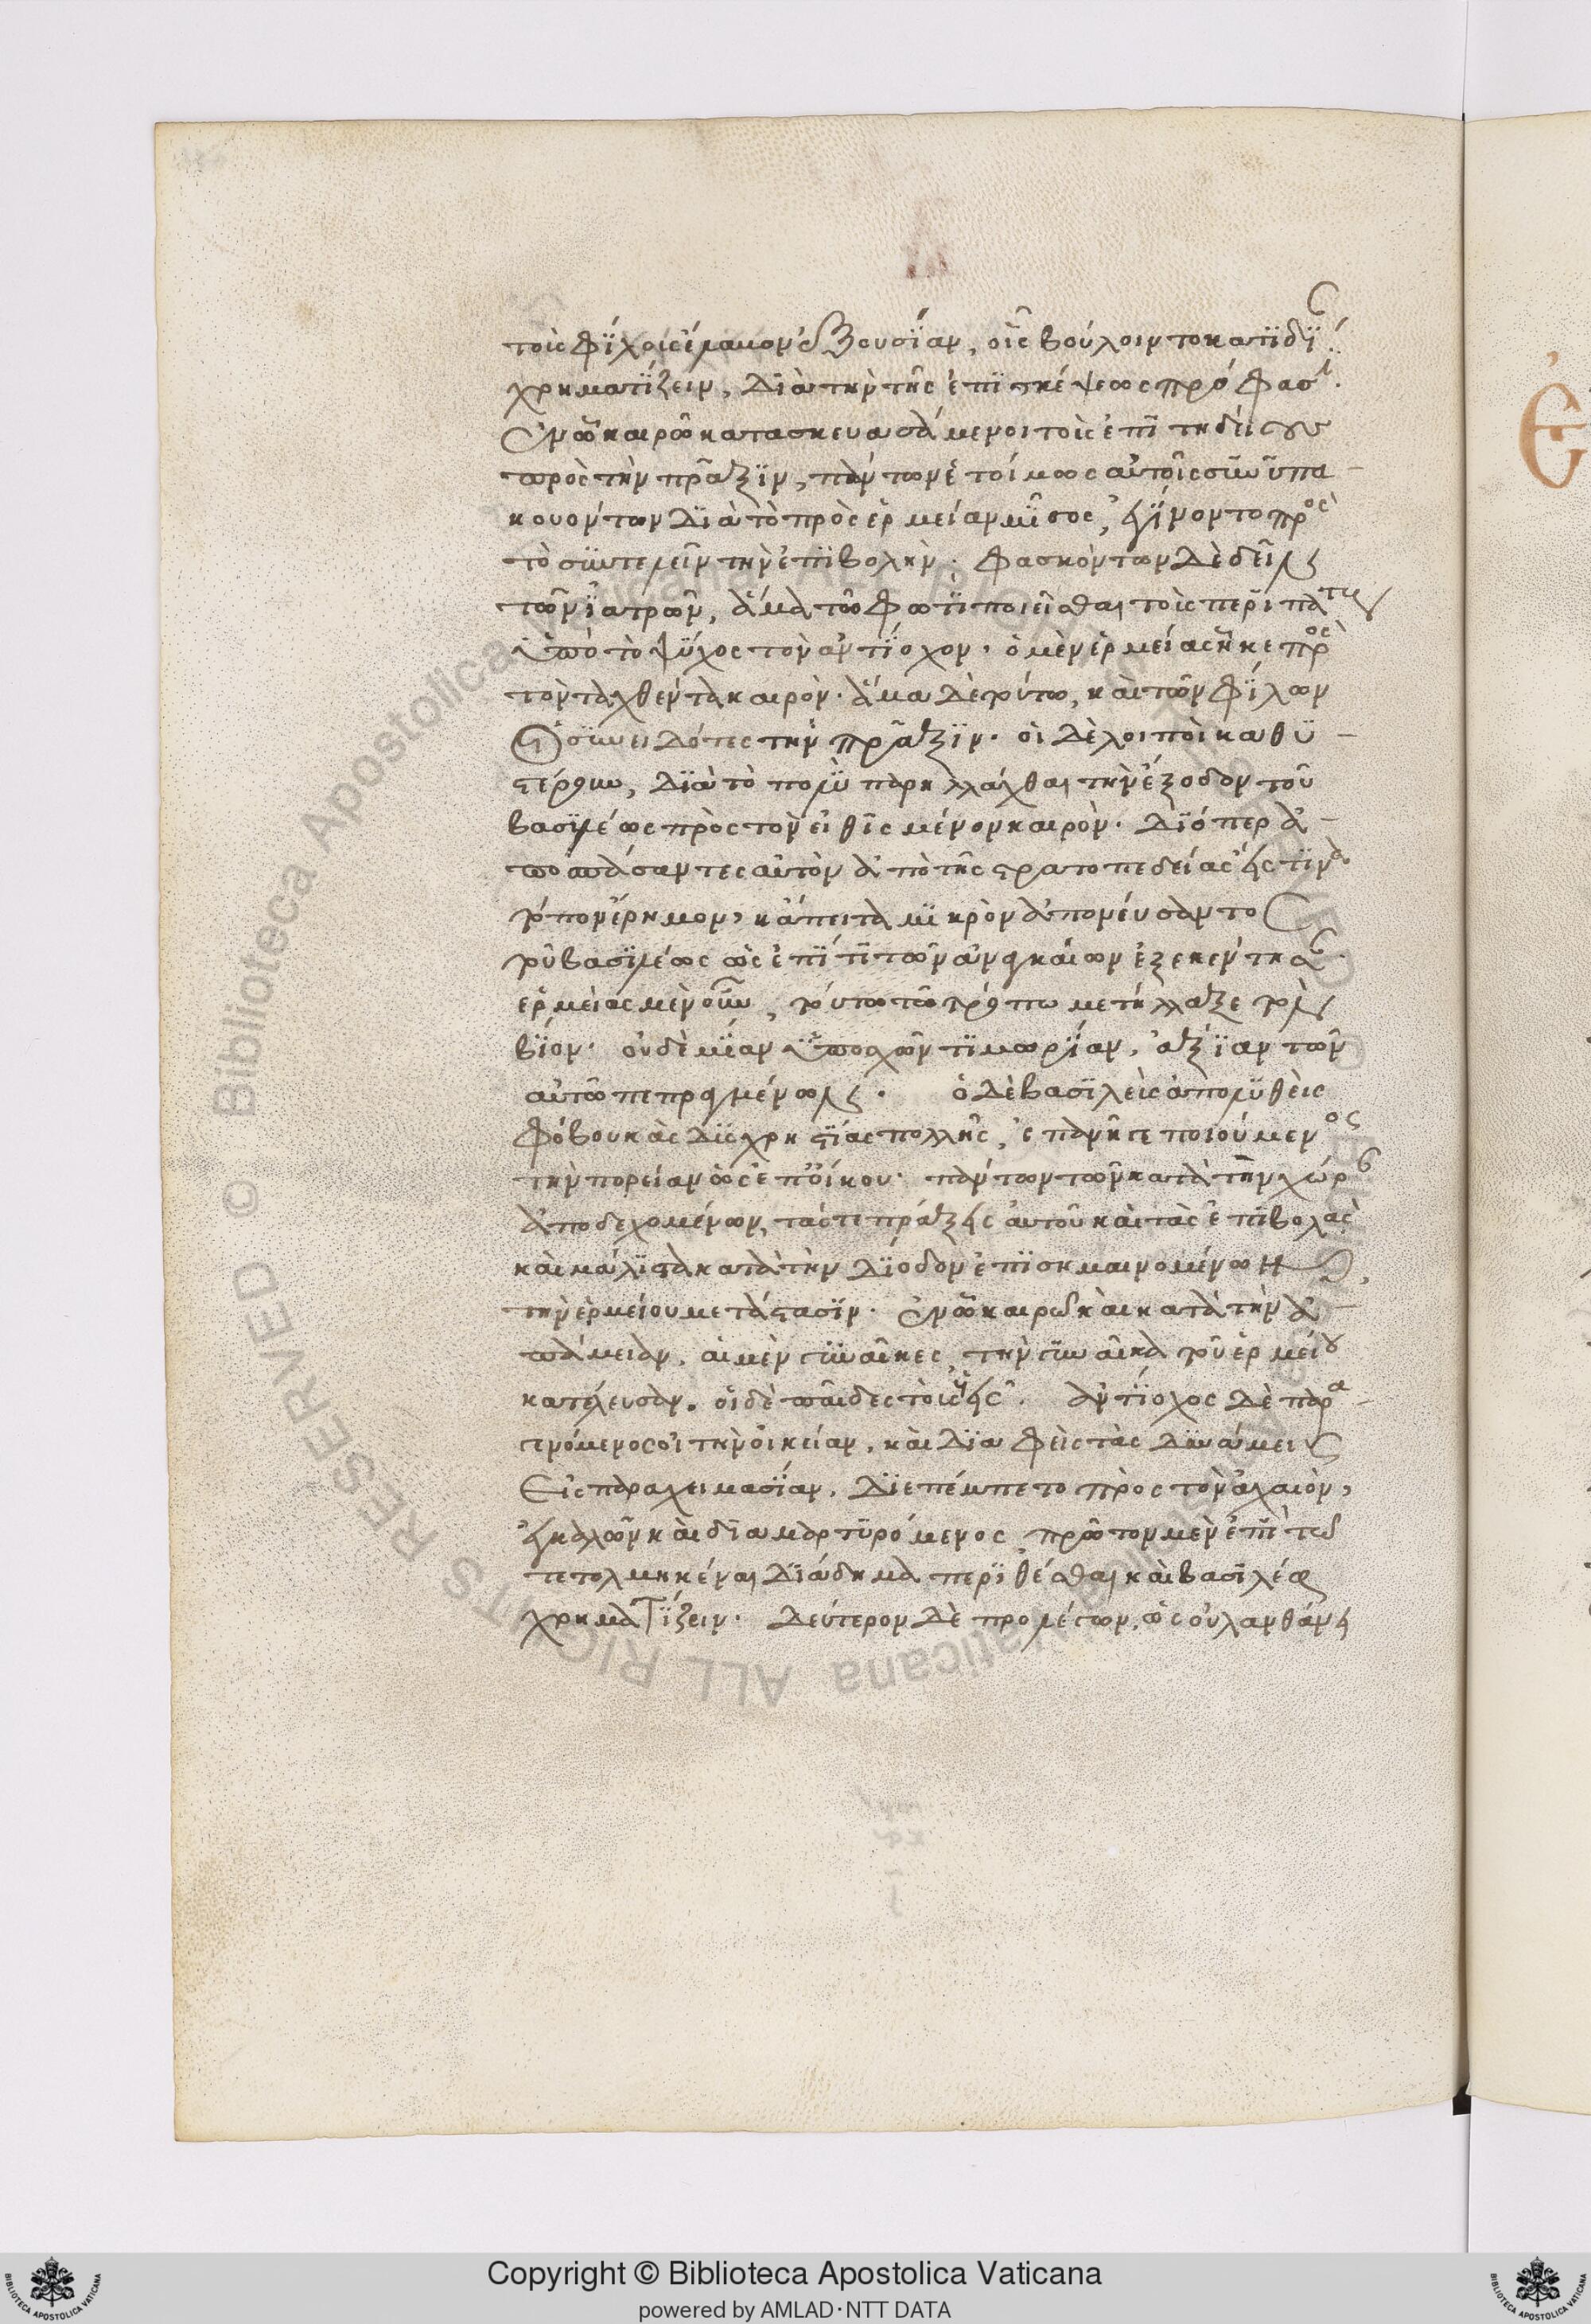 τοῖς φίλοις ἔλαβον ἐξουσίαν, οἷς βούλοιντο κατιδίαν
χρηματίζειν, διὰ τὴν τῆς ἐπισκέψεως πρόφασιν.
ἐν ᾧ καιρῷ κατασκευασάμενοι τοὺς ἐπιτηδείους
πρὸς τὴν πρᾶξιν, πάντων ἑτοίμως αὐτοῖς συνυπα-
κουόντων διὰ τὸ πρὸς ἑρμείαν μῖσος, ἐγίνοντο πρὸς
τὸ συντελεῖν τὴν ἐπιβολὴν. φασκόντων δὲ δεῖν
τῶν ἰατρῶν, ἅμα τῷ φωτὶ ποιεῖσθαι τοὺς περιπάτους
ὑπὸ τὸ ψύχος τὸν ἀντίοχον. ὁ μὲν ἑρμείας ἧκε πρὸς
τὸν ταχθέντα καιρὸν. ἅμα δὲ τούτω, καὶ τῶν φίλων
οἱ συνειδότες τὴν πρᾶξιν. οἱ δὲ λοιποὶ καθυ-
στέρουν, διὰ τὸ πολὺ παρηλλάχθαι τὴν ἔξοδον τοῦ
βασιλέως πρὸς τὸν εἰθισμένον καιρὸν. διόπερ ἀ-
ποσπάσαντες αὐτὸν ἀπὸ τῆς στρατοπεδείας εἴς τινα
τόπον ἔρημον, κἄπειτα μικρὸν ἀπονεύσαντος
τοῦ βασιλέως ὡς ἐπί τι τῶν ἀναγκαίων ἐξεκέντησαν.
ἑρμείας μὲν οὖν, τούτω τῶ τρόπω μετήλλαξε τὸν
βίον. οὐδὲ μίαν ὑποσχὼν τιμωρίαν, ἀξίαν τῶν
αὐτῶ πεπραγμένων. ὁ δὲ βασιλεὺς ἀπολυθεὶς
φόβου καὶ δυσχρηστίας πολλῆς, ἐπανῆτε ποιούμενος
τὴν πορείαν ὡς ἐπ' οἴκου. πάντων τῶν κατὰ τὴν χώραν
ἀποδεχομένων τάς τε πράξεις αὐτοῦ καὶ τὰς ἐπιβολὰς
καὶ μάλιστα κατὰ τὴν δίοδον ἐπισημαινομένων
τὴν ἑρμείου μετάστασιν. ἐν ᾧ καιρῷ καὶ κατὰ τὴν ἀ-
πάμειαν, αἱ μὲν γυναῖκες, τὴν γυναῖκα τοῦ ἑρμείου
κατέλευσαν. οἱ δὲ παῖδες τοὺς υἱεῖς. ἀντίοχος δὲ παρα-
γενόμενος εἰ τὴν οἰκείαν, καὶ διαφεὶς τὰς δυνάμεις
εἰς παραχειμασίαν, διεπέμπετο πρὸς τὸν ἀχαιὸν,
ἐγκαλῶν καὶ διαμαρτυρόμενος, πρῶτον μὲν ἐπὶ τῷ
τετολμηκέναι διάδημα περιθέσθαι καὶ βασιλέα
χρηματίζειν. δεύτερον δὲ προλέγων, ὡς οὐ λανθάνει